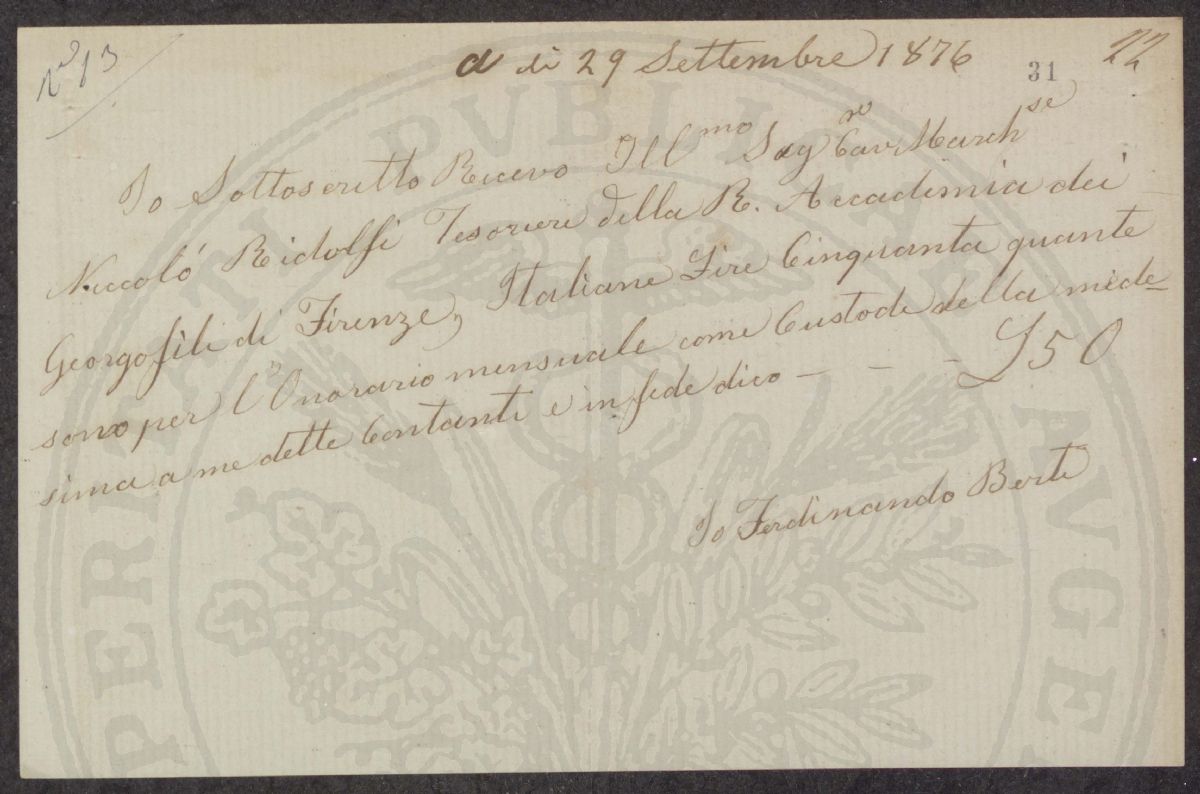 Nº 13
a di 29 Settembre 1876
31
22
Io Sottoscritto Ricevo Ill^mo Sig^re Cav March^se
Niccoló Ridolfi Tesoriere della R. Accademia dei
Georgofili di Firenze, Italiane Lire Cinquanta quante
sono per l'Onorario mensuale come Custode della mede=
sima a me dette Contanti e in fede dico — — — £ 50
Io Ferdinando Berti
PERITATI PUBLICAE AUGE